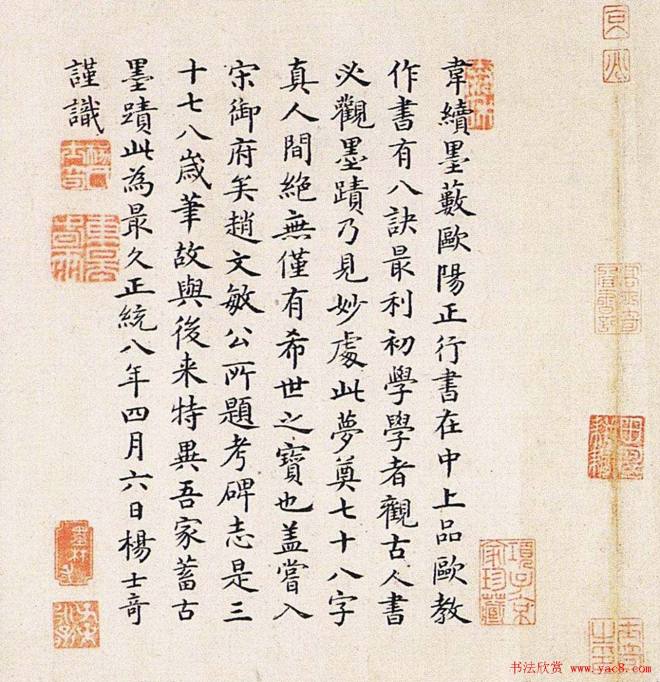 韋續墨藪歐陽正行書在中上品歐教
作書有八訣最利初學學者觀古人書
必觀墨蹟乃見妙處此夢奠七十八字
真人間絶無僅有希世之寶也盖嘗入
宋御府矣趙文敏公所題考碑志是三
十七八歲筆故與後来特異吾家蓄古
墨蹟此為最久正統八年四月六日楊士竒
謹識
項子京
家珍藏
墨林
书法欣赏 www.yac8.com